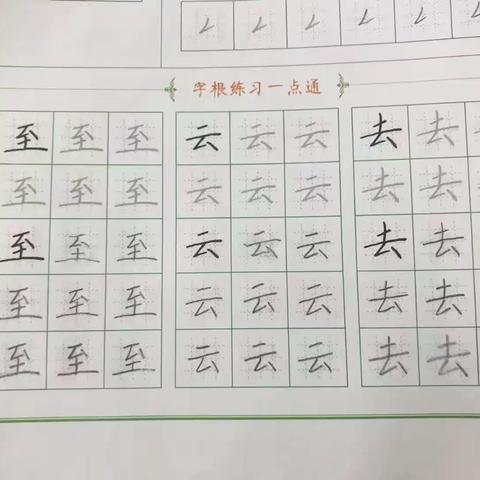 字根练习一点通
至 至 至 云 云 云 去 去
至 至 至 云 云 云 去 去
至 至 至 云 云 云 去 去
至 至 至 云 云 云 去 去
至 至 至 云 云 云 去 去